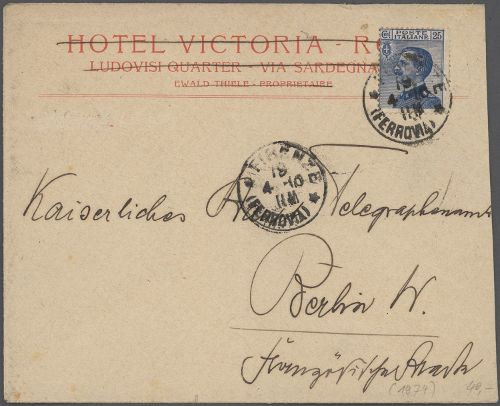 HOTEL VICTORIA - R
LUDOVISI QUARTER - VIA SARDEGNA
EWALD THIELE - PROPRIETAIRE
POSTE ITALIANE 25
FIRENZE
19
4-10
11M
(FERROVIA)
FIRENZE
19
4-10
11M
(FERROVIA)
Kaiserliches Telegraphenamt
Berlin W.
Französische
(1974) 40,-